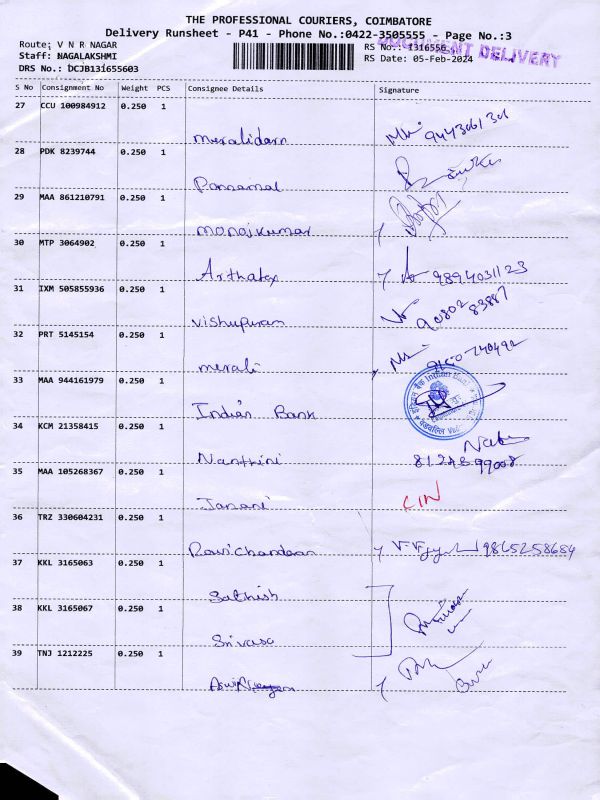 THE PROFESSIONAL COURIERS, COIMBATORE
Delivery Runsheet - P41 - Phone No.:0422-3505555 - Page No.:3
Route: V N R NAGAR
RS No.: 1316556
DOCUMENT DELIVERY
Staff: NAGALAKSHMI
RS Date: 05-Feb-2024
DRS No.: DCJB131655603
S No Consignment No Weight PCS Consignee Details Signature
27 CCU 100984912 0.250 1
meralidarn 9443061301
28 PDK 8239744 0.250 1
Ponsamal
29 MAA 861210791 0.250 1
manojkumar
30 MTP 3064902 0.250 1
Arthatex 9894031123
31 IXM 505855936 0.250 1
vishupuram 90802 83887
32 PRT 5145154 0.250 1
merali
33 MAA 944161979 0.250 1
Indian Bank
34 KCM 21358415 0.250 1
Nanthini
35 MAA 105268367 0.250 1
Janani CIN
36 TRZ 330604231 0.250 1
Ravichandran 9865258684
37 KKL 3165063 0.250 1
Sathish
38 KKL 3165067 0.250 1
Srivasa
39 TNJ 1212225 0.250 1